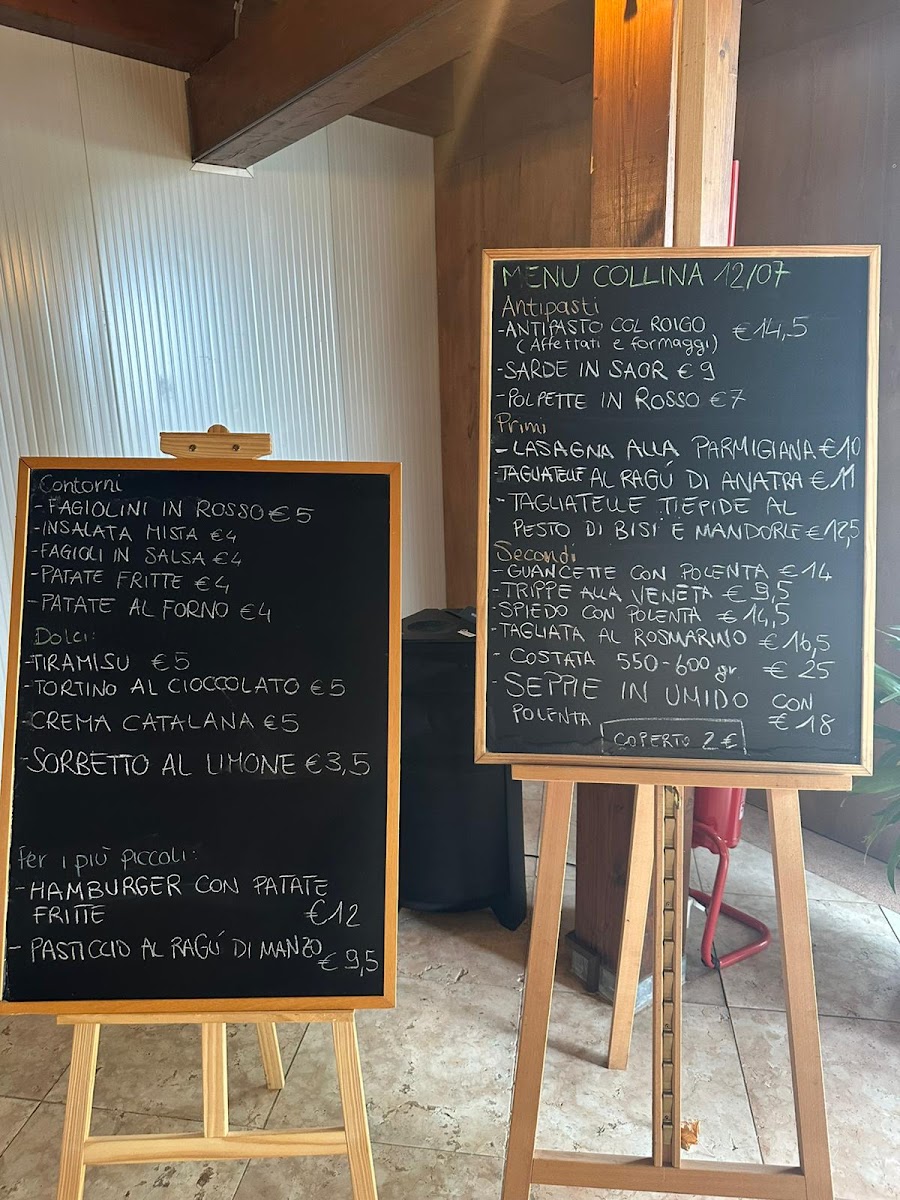 Contorni
- FAGIOLINI IN ROSSO € 5
- INSALATA MISTA €4
- FAGIOLI IN SALSA €4
- PATATE FRITTE €4
- PATATE AL FORNO €4
Dolci:
- TIRAMISU €5
- TORTINO AL CIOCCOLATO €5
- CREMA CATALANA €5
- SORBETTO AL LIMONE €3,5
Per i più piccoli:
- HAMBURGER CON PATATE
FRITTE €12
- PASTICCIO AL RAGÚ DI MANZO
€ 9,5
MENU COLLINA 12/07
Antipasti
- ANTIPASTO COL ROIGO €14,5
(Affettati e formaggi)
- SARDE IN SAOR €9
- POLPETTE IN ROSSO €7
Primi
- LASAGNA ALLA PARMIGIANA €10
- TAGLIATELLE AL RAGÚ DI ANATRA €11
- TAGLIATELLE TIEPIDE AL
PESTO DI BISI E MANDORLE €12,5
Secondi
- GUANCETTE CON POLENTA €14
- TRIPPE ALLA VENETA €9,5
- SPIEDO CON POLENTA €14,5
- TAGLIATA AL ROSMARINO €16,5
- COSTATA 550-600 gr € 25
- SEPPIE IN UMIDO CON
POLENTA €18
COPERTO 2€